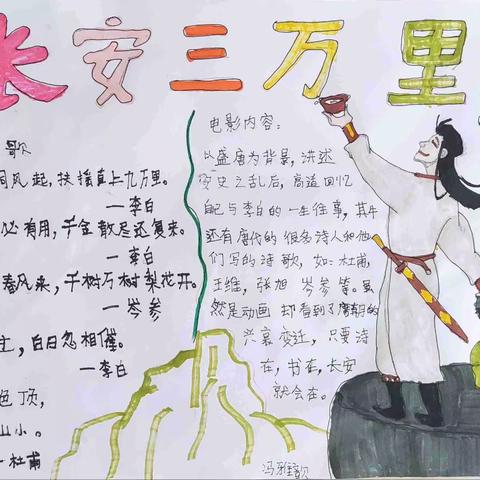 长安三万里
歌
同风起,扶摇直上九万里。
—李白
必有用,千金散尽还复来。
—李白
春风来,千树万树梨花开。
—岑参
,白日忽相催。
—李白
绝顶,
山小。
-杜甫
电影内容:
以盛唐为背景,讲述
安史之乱后,高适回忆
自己与李白的一生往事,其中
还有唐代的很多诗人和他
们写的诗歌,如:杜甫,
王维,张旭 岑参等。虽
然是动画 却看到了唐朝的
兴衰变迁,只要诗
在,书在,长安
就会在。
冯雅